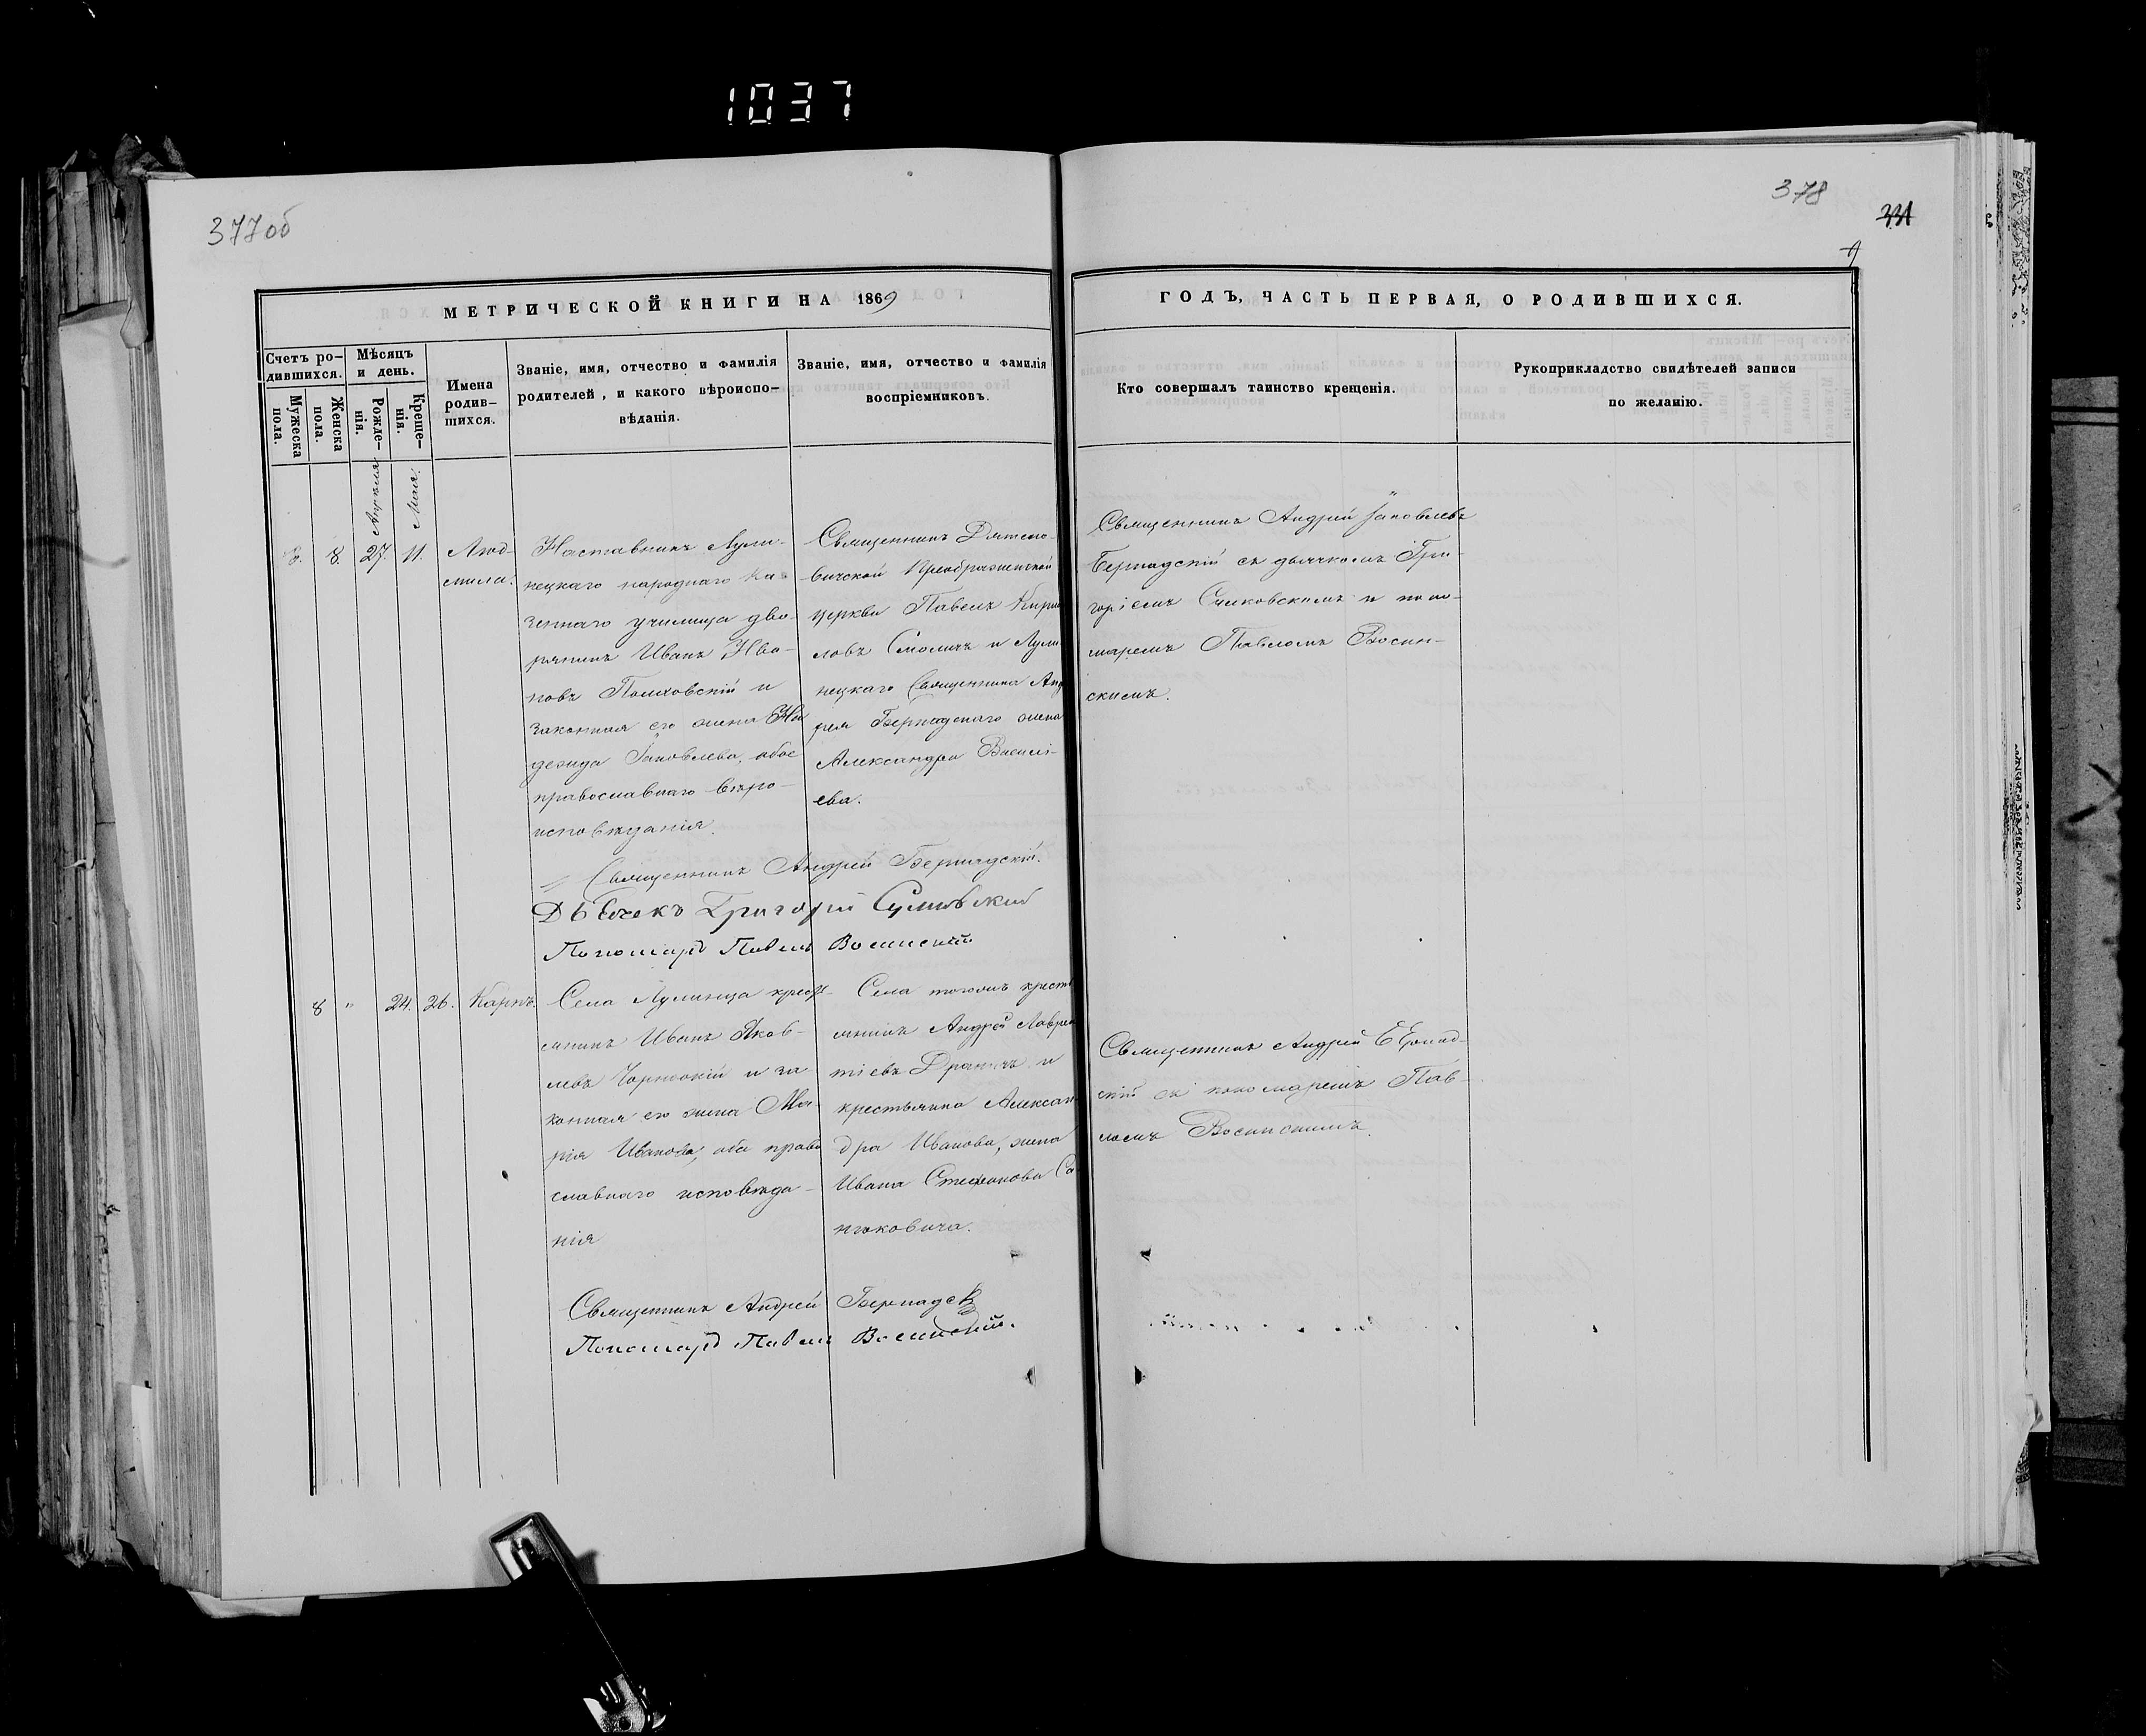 1037
377об
378
331
МЕТРИЧЕСКОЙ КНИГИ НА 1869
ГОДЪ, ЧАСТЬ ПЕРВАЯ, О РОДИВШИХСЯ.
Счетъ ро-
дившихся.
Мужеска
пола.
Женска
пола.
Мѣсяцъ
и день.
Рожде-
нія.
Креще-
нія.
Имена
родив-
шихся.
Званіе, имя, отчество и фамилія
родителей, и какого вѣроиспо-
вѣданія.
Званіе, имя, отчество и фамилія
воспріемниковъ.
Кто совершалъ таинство крещенія.
Рукоприкладство свидѣтелей записи
по желанію.
Апрѣля
Мая
8. 27. 11.
Люд-
мила.
Наставникъ Лули-
нецкаго народнаго ка-
зеннаго училища дво-
рянинъ Иванъ Ива-
новъ Полховскій и
законная его жена На
дежда Іаковлева, обое
православнаго вѣро-
исповѣданія.
Священникъ Дятело-
вичской Преображенской
церкви Павелъ Кири
ловъ Смоличъ и Лули
нецкаго Священника Анд
рея Бернадскаго жена
Александра Василі-
ева.
Священникъ Андрей Іаковлевъ
Бернадскій съ дьячкомъ Гри-
горіемъ Сулковскимъ и поно-
маремъ Павломъ Восин-
скимъ.
Священникъ Андрей Бернадскій.
Дьячекъ Григорій Сулковскій
Пономарь Павелъ Восинскій
8 " 24. 26. Карпъ.
Села Лулинца крест-
янинъ Иванъ Яков-
левъ Чорноокій и за
конная его жена Ма-
рія Иванова, оба право
славнаго исповѣда-
нія
Села тогожъ крест
янинъ Андрей Лаврен
тіевъ Драничъ и
крестьянина Алексан
дра Иванова, жена
Ивана Стефанова Са
нюковича.
Священникъ Андрей Бернад-
скій съ пономаремъ Пав-
ломъ Восинскимъ.
Священникъ Андрей Бернадск
Пономарь Павелъ Восинскій.